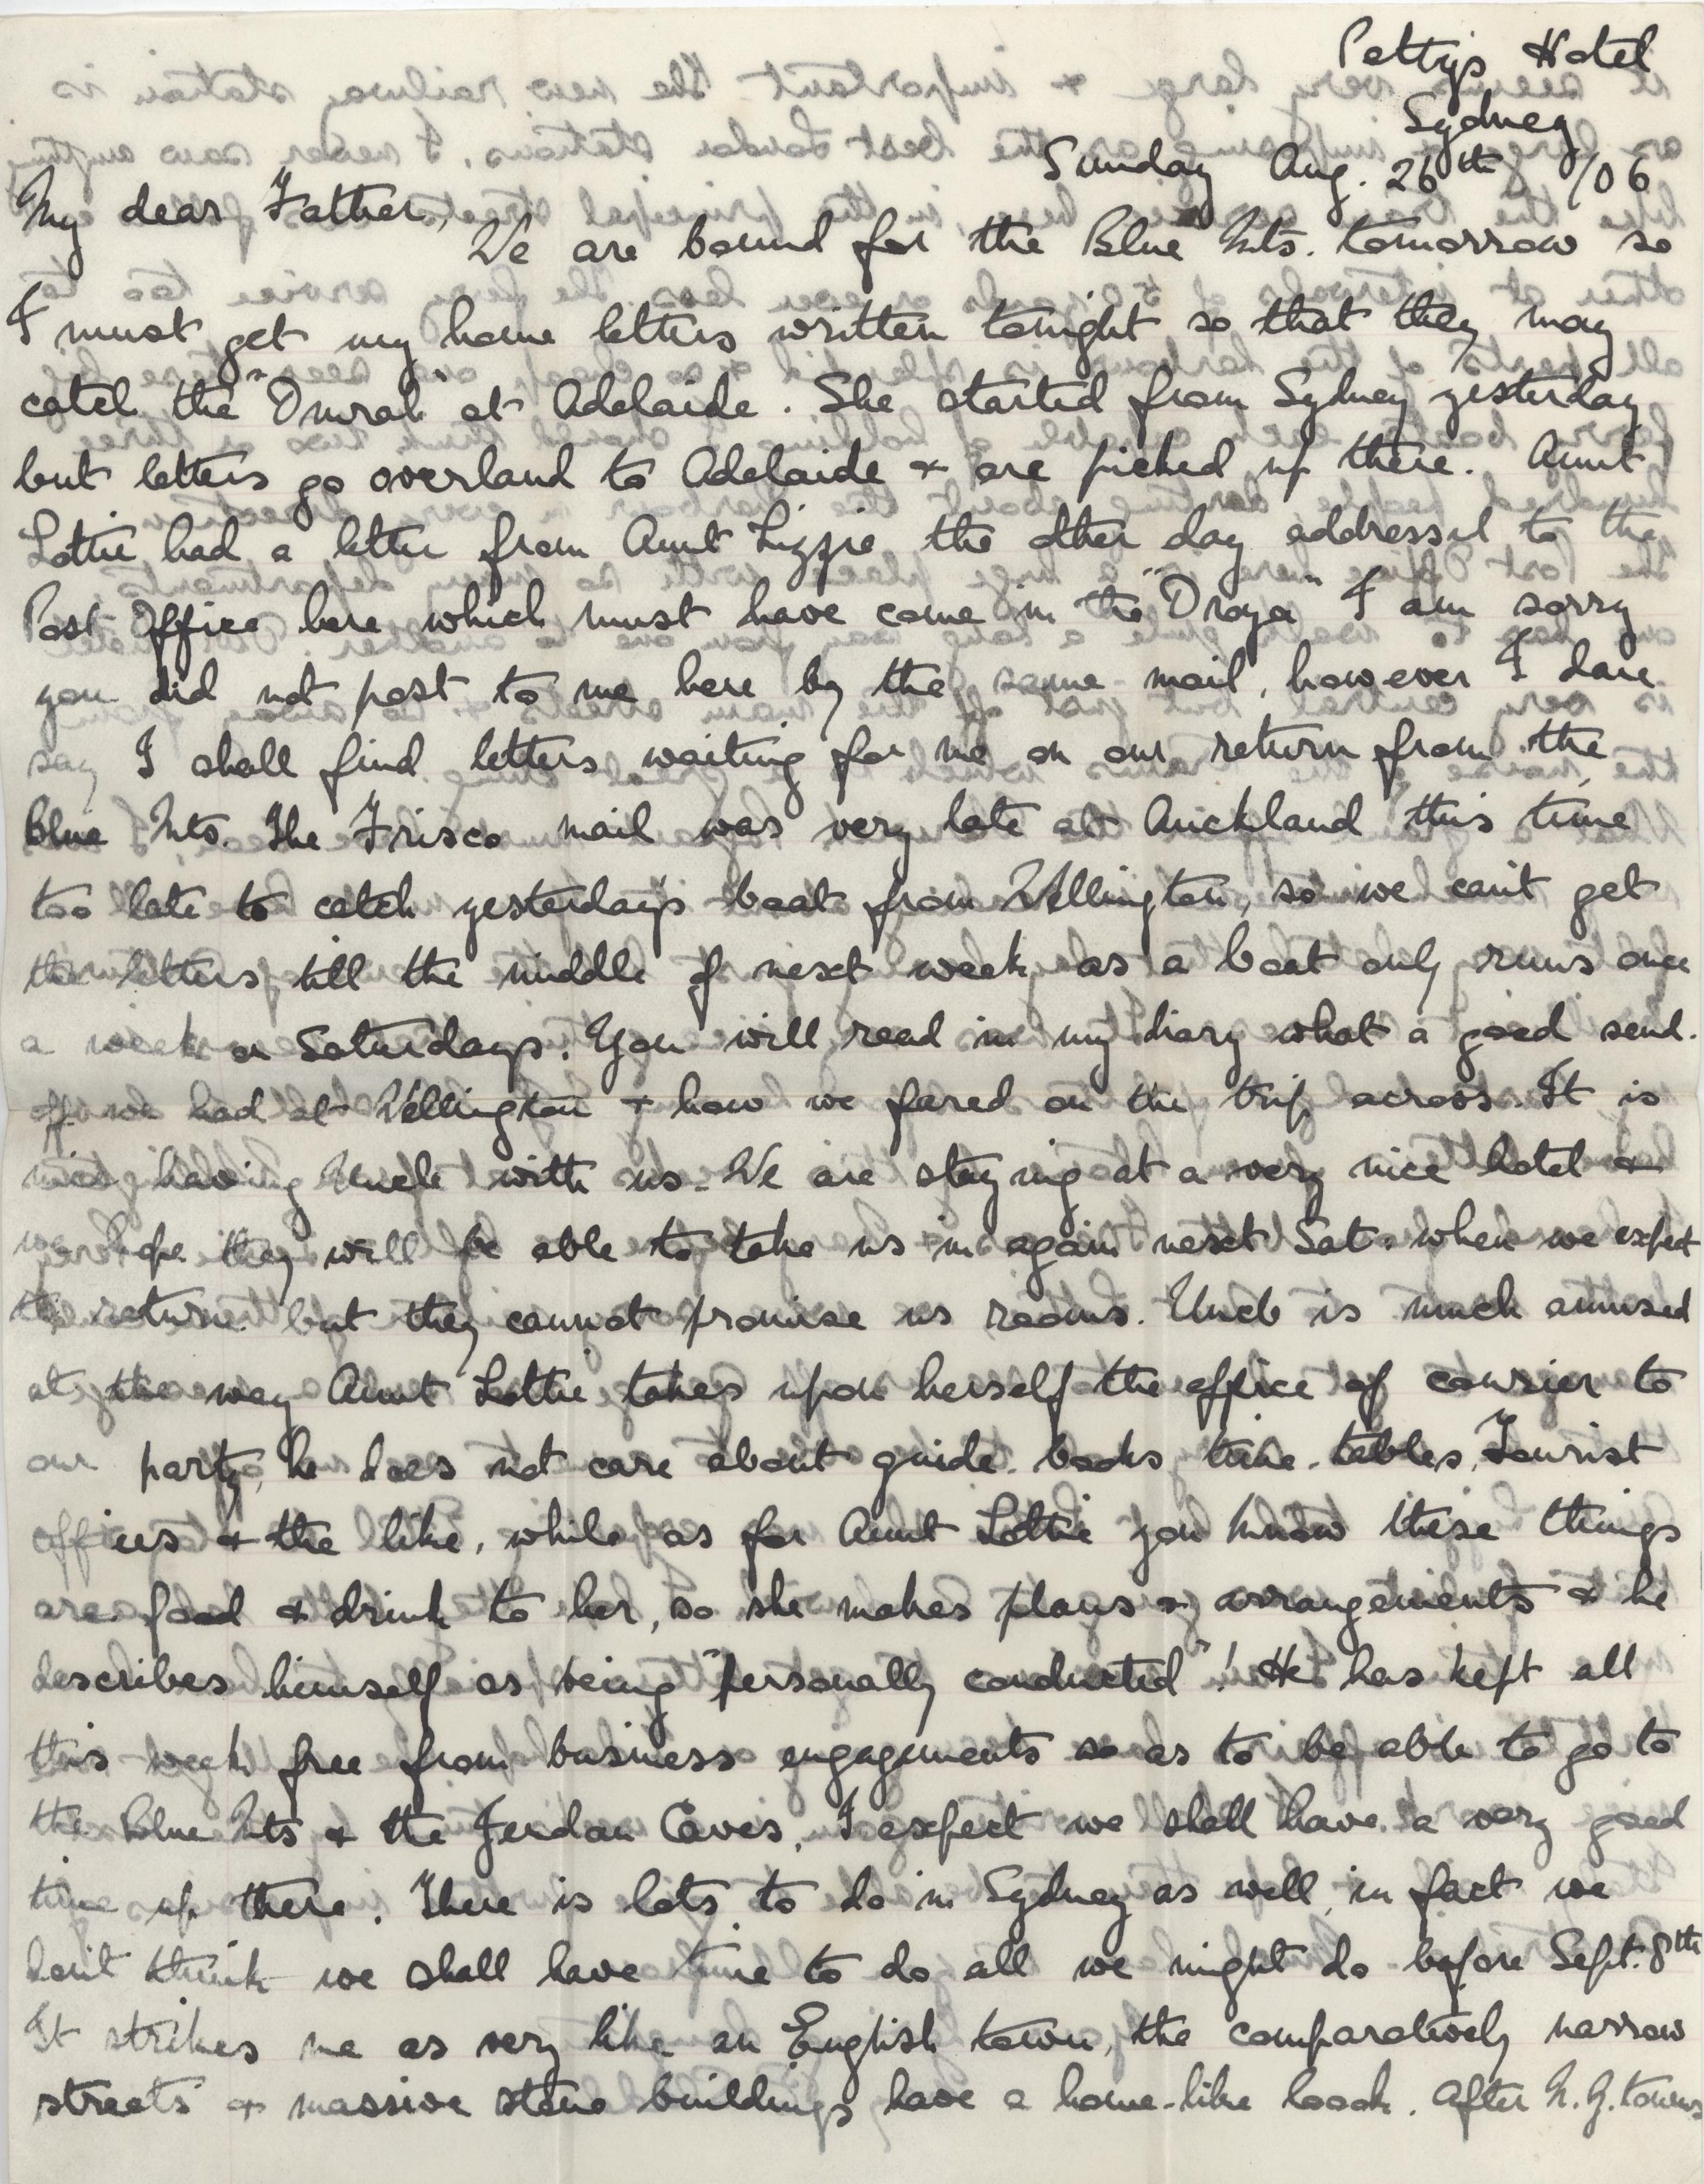 Pettys Hotel
Sydney
Sunday Aug. 26th /06
My dear Father,
We are bound for the Blue Mts. tomorrow so
I must get my home letters written tonight so that they may
catch the "Omrah" at Adelaide. She started from Sydney yesterday
but letters go overland to Adelaide & are picked up there. Aunt
Lottie had a letter from Aunt Lizzie the other day addressed to the
Post Office here which must have come in the "Oroya" I am sorry
you did not post to me here by the same mail, however I dare
say I shall find letters waiting for me on our return from the
Blue Mts. The Frisco mail was very late at Auckland this time
too late to catch yesterday's boat from Wellington, so we can't get
the letters till the middle of next week as a boat only runs once
a week on Saturdays. You will read in my diary what a good send.
off we had at Wellington & how we fared on the trip across. It is
nice having Uncle with us. We are staying at a very nice hotel &
we hope they will be able to take us in again next Sat. when we expect
to return but they cannot promise us rooms. Uncle is much amused
at the way Aunt Lottie takes upon herself the office of courier to
our party, he does not care about guide. books time. tables, Tourist
offices & the like, while as for Aunt Lottie you know these things
are food & drink to her, so she makes plans & arrangements & he
describes himself as being "personally conducted"! He has kept all
this week free from business engagements so as to be able to go to
the Blue Mts & the Jenolan Caves, I expect we shall have a very good
time up there. There is lots to do in Sydney as well, in fact we
don't think we shall have time to do all we might do before Sept. 8th
It strikes me as very like an English town, the comparatively narrow
streets & massive stone buildings have a home-like look. After N.Z. towns